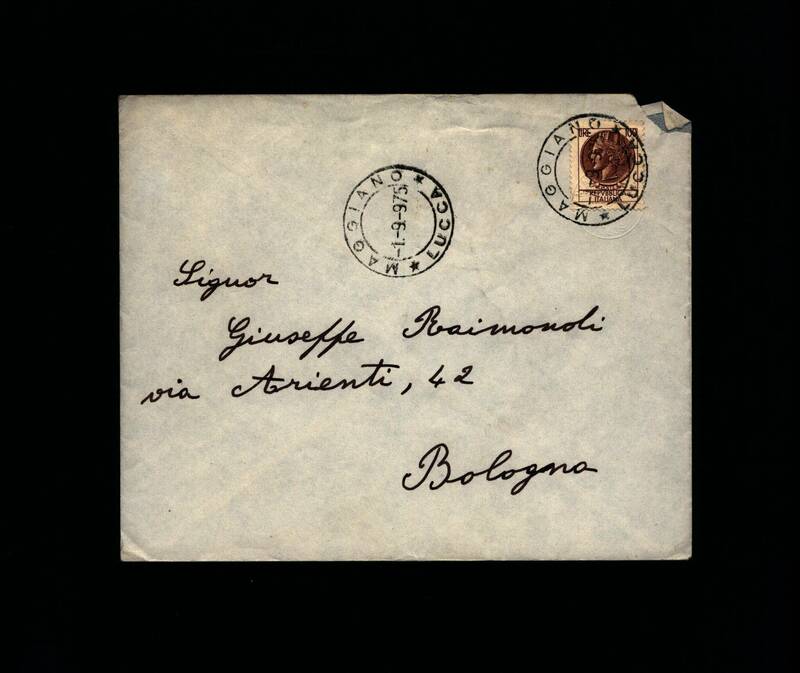 MAGGIANO * LUCCA *
-1.-9-975
MAGGIANO * LUCCA *
LIRE 100
ITALIANA
Signor
Giuseppe Raimondi
via Arienti, 42
Bologna